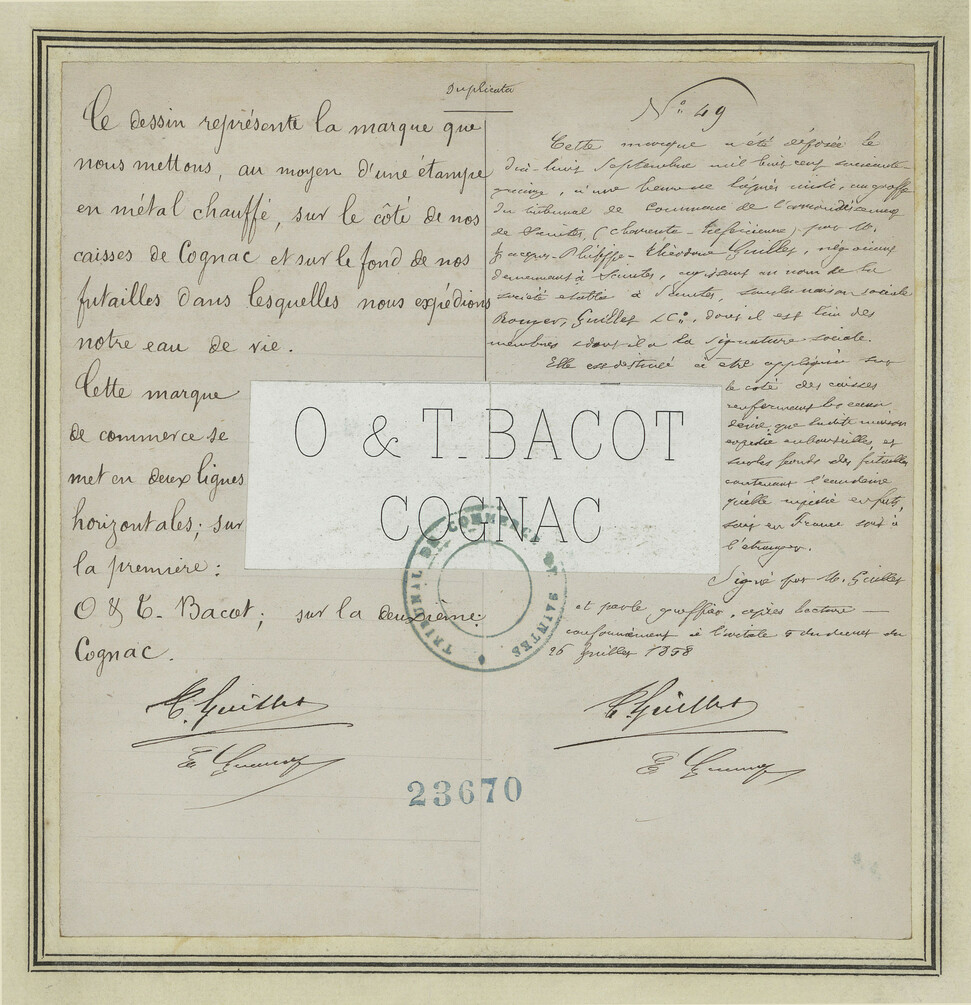 Duplicata
Ce dessin représente la marque que
nous mettons, au moyen d'une étampe
en métal chauffé, sur le côté de nos
caisses de Cognac et sur le fond de nos
futailles dans lesquelles nous expédions
notre eau de vie.
Cette marque
de commerce se
met en deux lignes
horizontales; sur
la première:
O & T. Bacot; sur la deuxième:
Cognac.
T. Guillet
N° 49
Cette marque a été déposée le
dix-huit Septembre mil huit cent soixante
quinze, à une heure de l'après midi, au greffe
du tribunal de Commerce de l'arrondissement
de Saintes, (Charente-Inférieure) par M.
Jacques-Philippe-Théodore Guillet, négociant
demeurant à Saintes, agissant au nom de la
société établie à Saintes, sous la raison sociale
Rouyer, Guillet & Cie, dont il est l'un des
membres et dont il a la signature sociale.
Elle est destinée à être appliquée sur
le coté des caisses
renfermant les eaux
de vie que ladite maison
expédie en bouteilles, et
sur les fonds des futailles
contenant l'eau de vie
qu'elle expédie en fûts,
soit en France soit à
l'étranger.
Signé par M. Guillet
et par le greffier, après lecture —
conformément à l'article 5 du décret du
26 Juillet 1858
T. Guillet
O & T. BACOT
COGNAC
TRIBUNAL DE COMMERCE DE SAINTES
23670